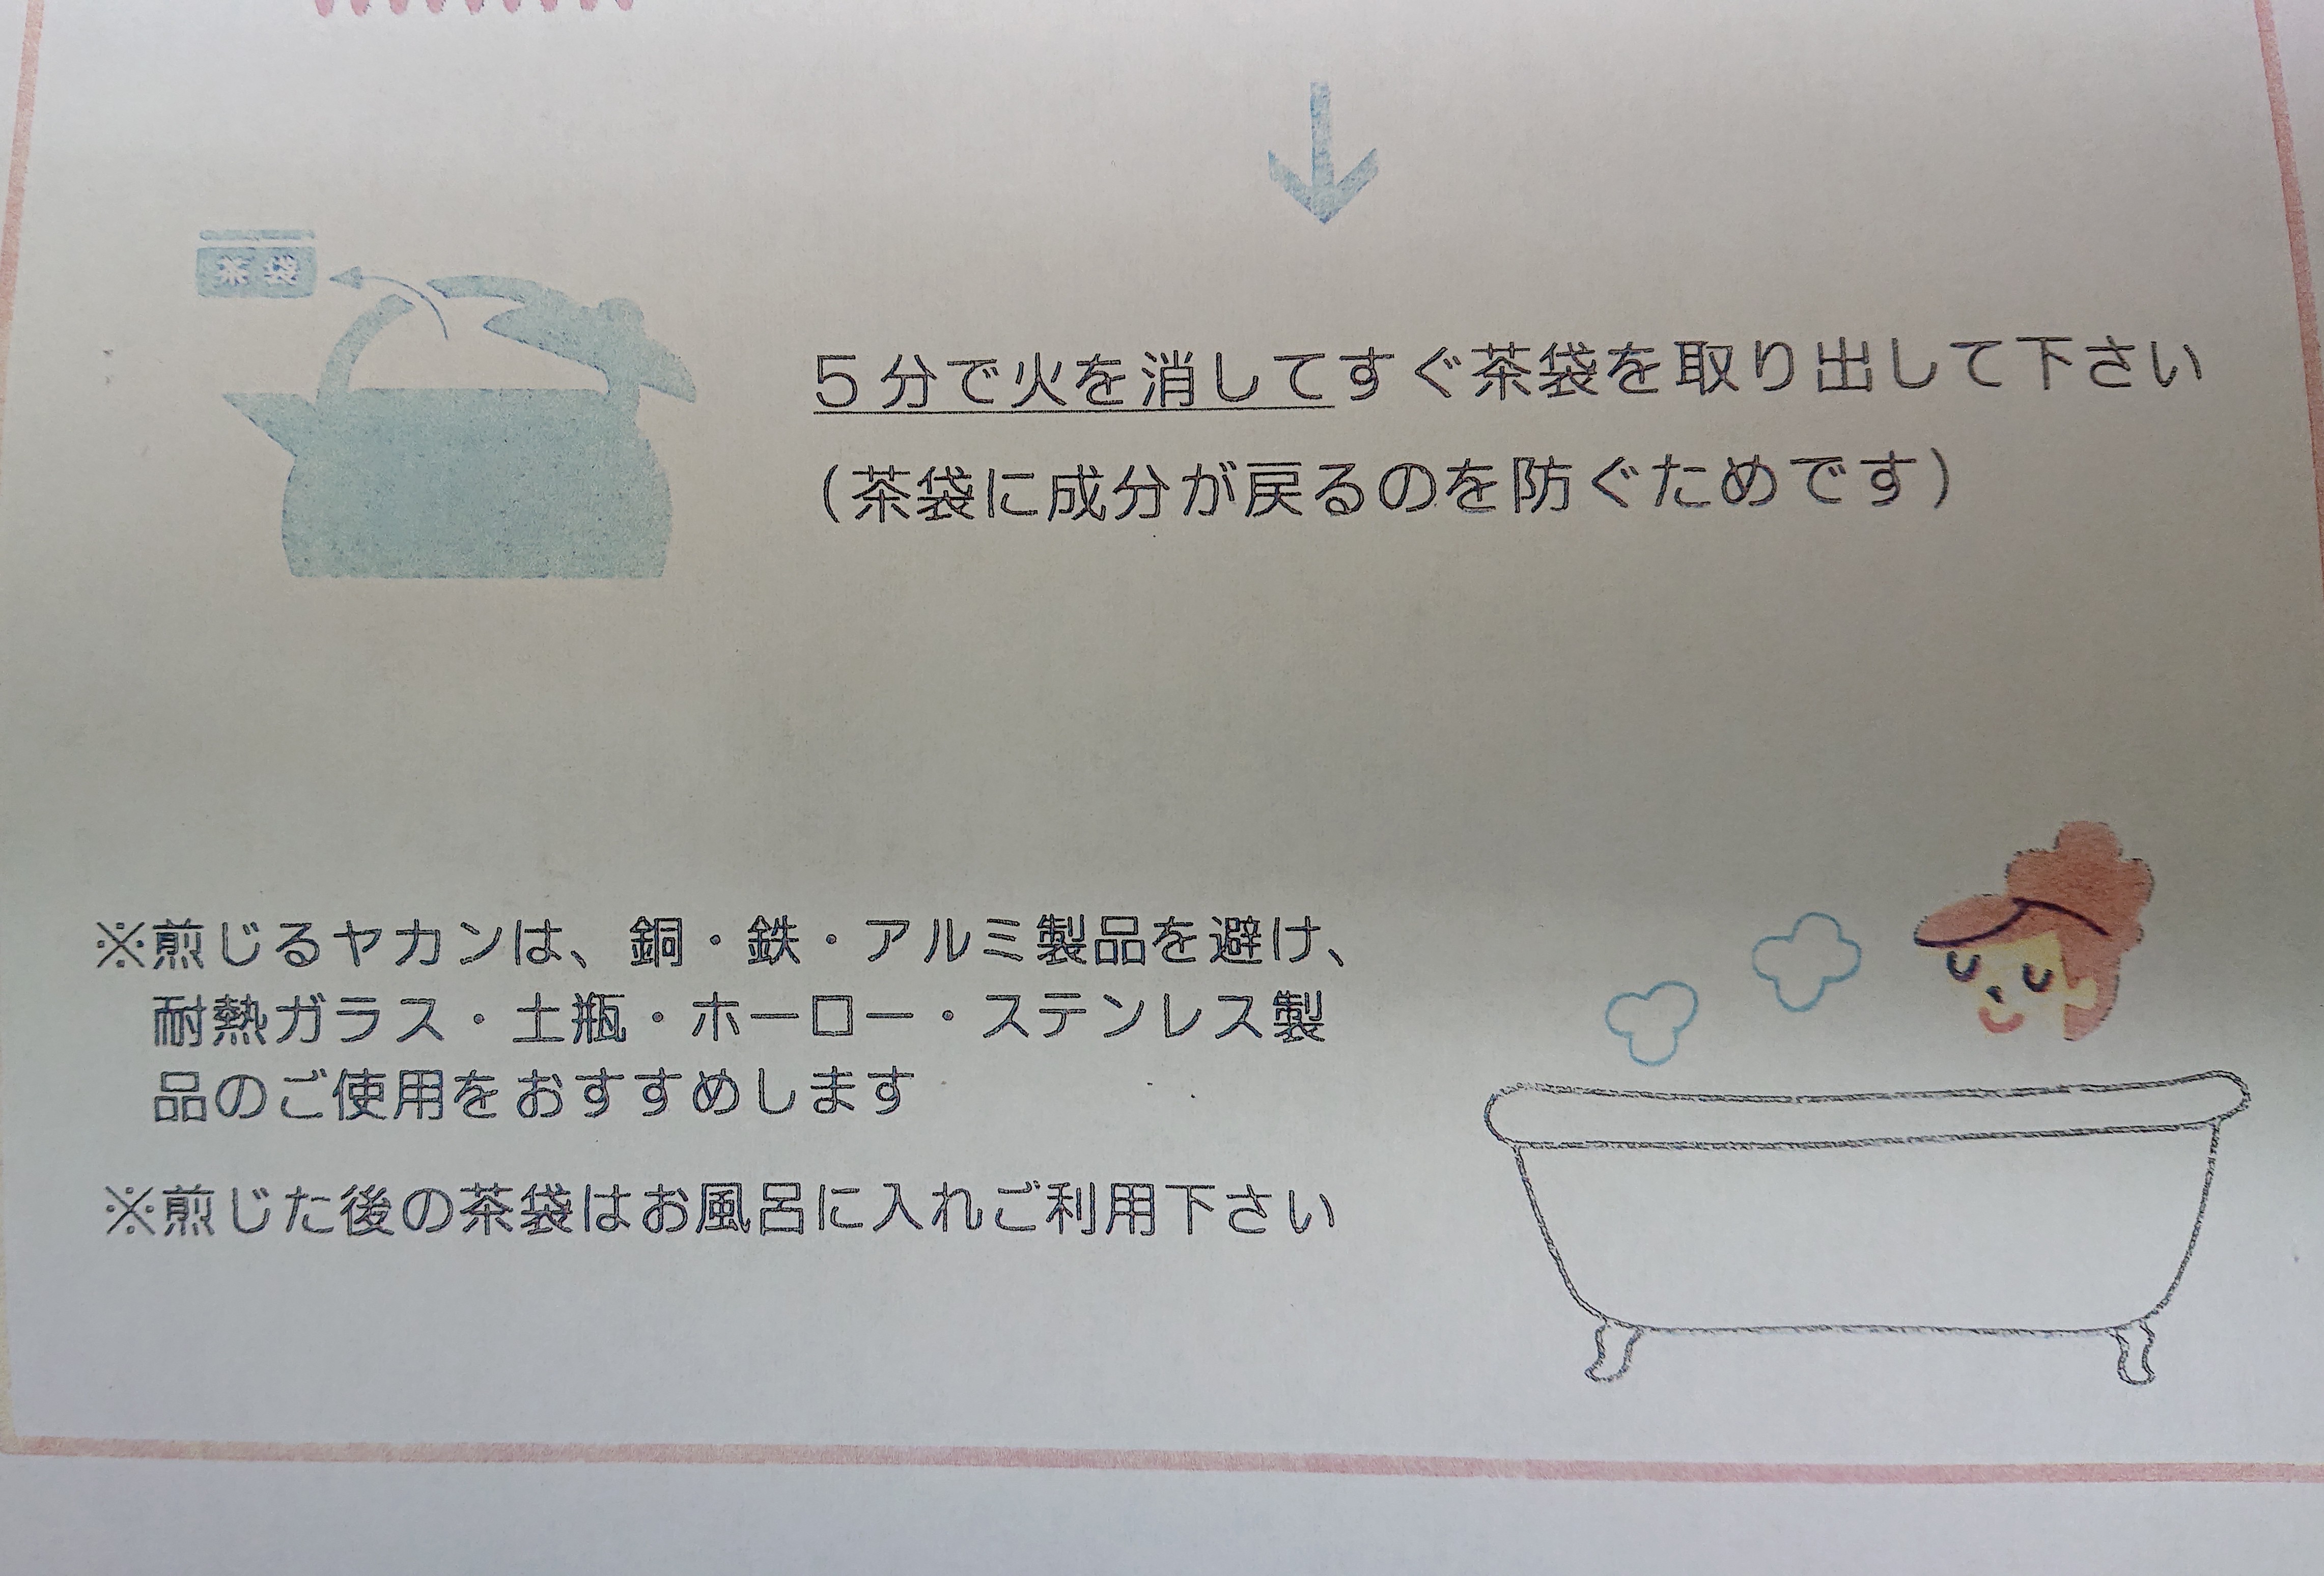 茶袋
5分で火を消してすぐ茶袋を取り出して下さい
(茶袋に成分が戻るのを防ぐためです)
※煎じるヤカンは、銅・鉄・アルミ製品を避け、
耐熱ガラス・土瓶・ホーロー・ステンレス製
品のご使用をおすすめします
※煎じた後の茶袋はお風呂に入れご利用下さい